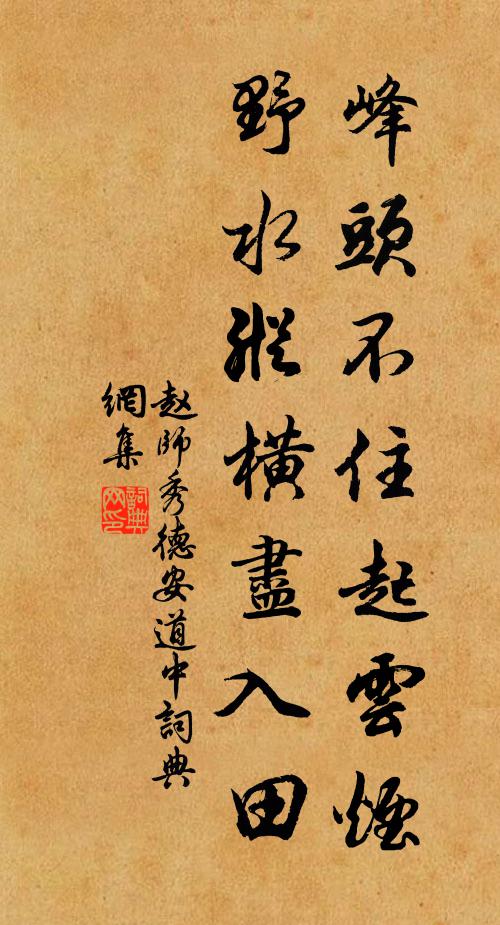 峰頭不住起雲煙
野水縱橫盡入田
赵師秀德安道中詞典
網集
詞典
网印